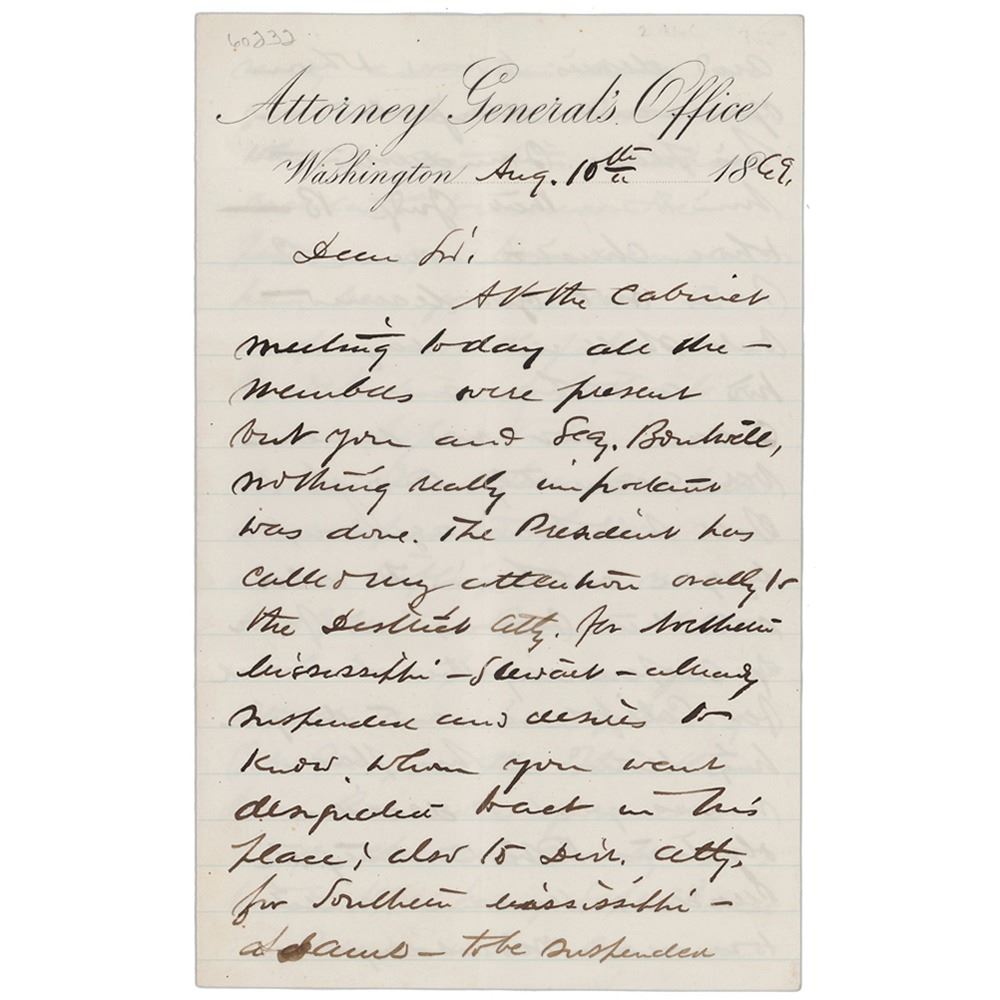 60232
Attorney General's Office
Washington Aug. 10th 1869.
Dear Sir:
At the Cabinet
meeting today all the
members were present
but you and Secy. Boutwell,
nothing really important
was done. The President has
called my attention orally to
the District Atty. for Northern
Mississippi – Stewart – already
suspended and desires to
know whom you want
designated to act in his
place; also to Dist. Atty.
for Southern Mississippi –
– to be suspended